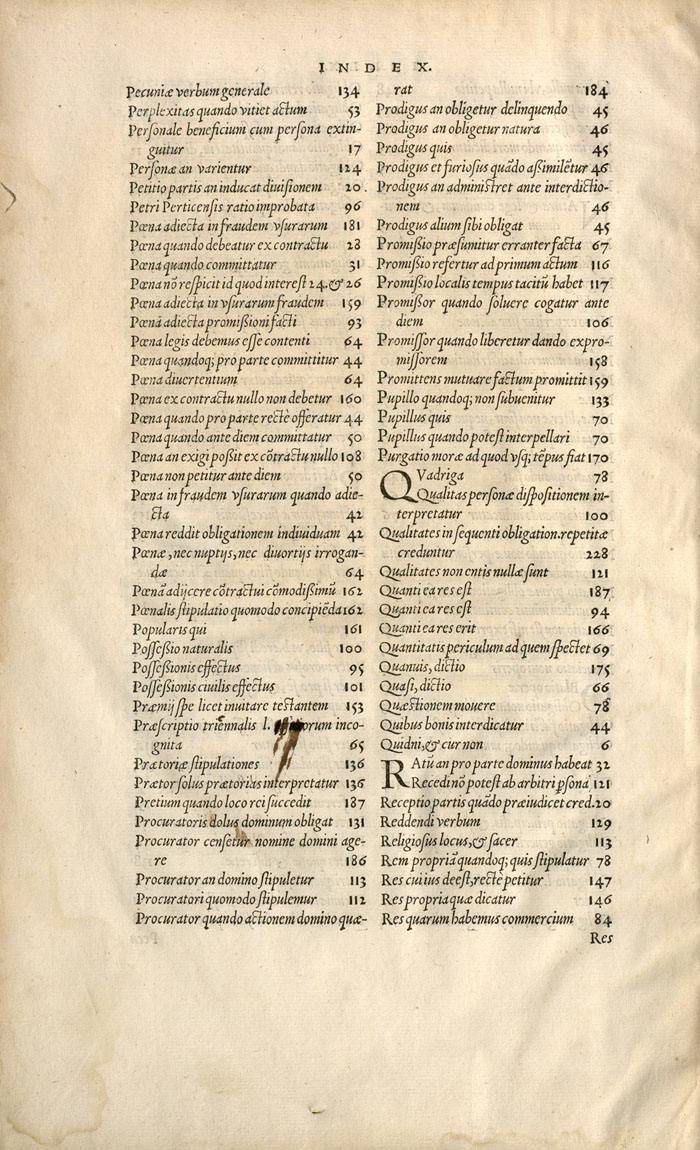 INDEX.
Pecuniæ verbum generale 134
Perplexitas quando vitiet actum 53
Perſonale beneficium cum perſona extin-
guitur 17
Perſonæ an varientur 124
Petitio partis an inducat diuiſionem 20.
Petri Perticenſis ratio improbata 96
Pœna adiecta in fraudem vſurarum 181
Pœna quando debeatur ex contractu 28
Pœna quando committatur 31
Pœna nõ reſpicit id quod intereſt 24.& 26
Pœna adiecta in vſurarum fraudem 159
Pœna adiecta promißioni facti 93
Pœna legis debemus eſſe contenti 64
Pœna quandoq; pro parte committitur 44
Pœna diuertentium 64
Pœna ex contractu nullo non debetur 160
Pœna quando pro parte rectè offeratur 44
Pœna quando ante diem committatur 50
Pœna an exigi poßit ex cõtractu nullo 108
Pœna non petitur ante diem 50
Pœna in fraudem vſurarum quando adie-
cta 42
Pœna reddit obligationem indiuiduam 42
Pœnæ, nec nuptijs, nec diuortijs irrogan-
dæ 64
Pœnã adijcere cõtractui cõmodißimũ 162
Pœnalis ſtipulatio quomodo concipiẽda 162
Popularis qui 161
Poſſeßio naturalis 100
Poſſeßionis effectus 95
Poſſeßionis ciuilis effectus 101
Præmij ſpe licet inuitare teſtantem 153
Præſcriptio triennalis l. inco-
gnita 65
Prætoriæ ſtipulationes 136
Prætor ſolus prætorias interpretatur 136
Pretium quando loco rei ſuccedit 187
Procuratoris dolus dominum obligat 131
Procurator cenſetur nomine domini age-
re 186
Procurator an domino ſtipuletur 113
Procuratori quomodo ſtipulemur 112
Procurator quando actionem domino quæ-
rat 184
Prodigus an obligetur delinquendo 45
Prodigus an obligetur natura 46
Prodigus quis 45
Prodigus et furioſus quãdo aßimilẽtur 46
Prodigus an adminiſtret ante interdictio-
nem 46
Prodigus alium ſibi obligat 45
Promißio præſumitur erranter facta 67
Promißio refertur ad primum actum 116
Promißio localis tempus tacitũ habet 117
Promißor quando ſoluere cogatur ante
diem 106
Promiſſor quando liberetur dando expro-
miſſorem 158
Promittens mutuare factum promittit 159
Pupillo quandoq; non ſubuenitur 133
Pupillus quis 70
Pupillus quando poteſt interpellari 70
Purgatio moræ ad quod vſq; tẽpus fiat 170
QVadriga 78
Qualitas perſonæ diſpoſitionem in-
terpretatur 100
Qualitates in ſequenti obligation.repetitæ
creduntur 228
Qualitates non entis nullæ ſunt 121
Quanti ea res eſt 187
Quanti ea res eſt 94
Quanti ea res erit 166
Quantitatis periculum ad quem ſpectet 69
Quanuis, dictio 175
Quaſi, dictio 66
Quæſtionem mouere 78
Quibus bonis interdicatur 44
Quidni, & cur non 6
RAtũ an pro parte dominus habeat 32
Recedi nõ poteſt ab arbitri pſona 121
Receptio partis quãdo præiudicet cred.20
Reddendi verbum 129
Religioſus locus, & ſacer 113
Rem propriã quandoq; quis ſtipulatur 78
Res cui ius deeſt, rectè petitur 147
Res propria quæ dicatur 146
Res quarum habemus commercium 84
Res